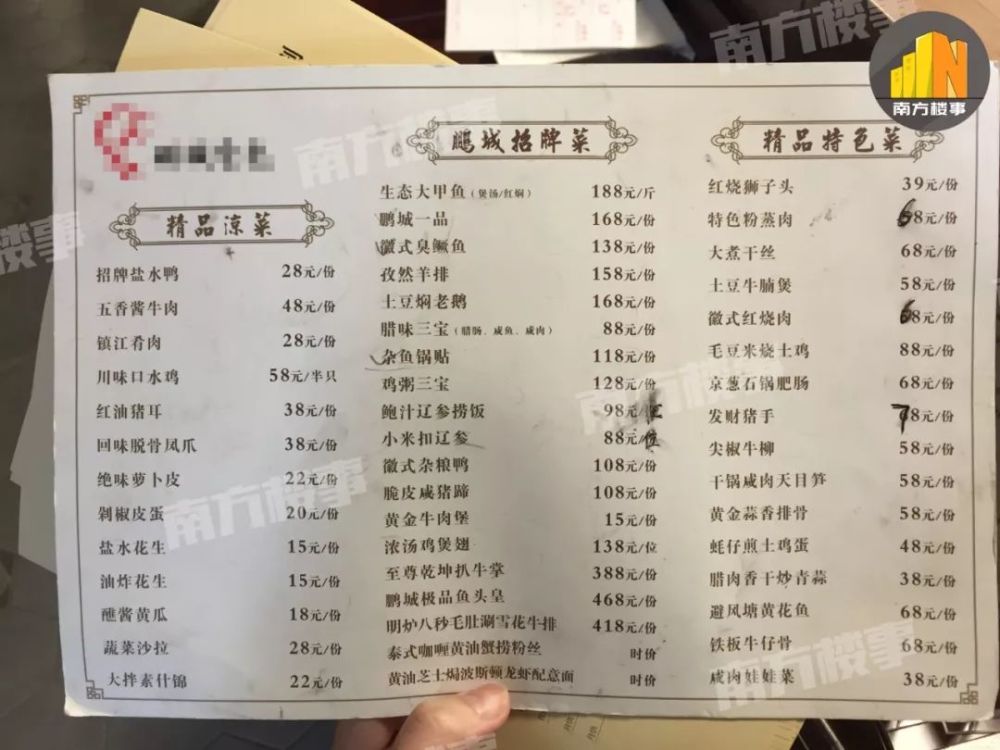 南方楼事
精品凉菜
招牌盐水鸭 28元/份
五香酱牛肉 48元/份
镇江肴肉 28元/份
川味口水鸡 58元/半只
红油猪耳 38元/份
回味脱骨凤爪 38元/份
绝味萝卜皮 22元/份
剁椒皮蛋 20元/份
盐水花生 15元/份
油炸花生 15元/份
醮酱黄瓜 18元/份
蔬菜沙拉 28元/份
大拌素什锦 22元/份
鹏城招牌菜
生态大甲鱼(煲汤/红焖) 188元/斤
鹏城一品 168元/份
徽式臭鳜鱼 138元/份
孜然羊排 158元/份
土豆焖老鹅 168元/份
腊味三宝(腊肠、咸鱼、咸肉) 88元/份
杂鱼锅贴 118元/份
鸡粥三宝 128元/份
鲍汁辽参捞饭 98元/位
小米扣辽参 88元/位
徽式杂粮鸭 108元/份
脆皮咸猪蹄 108元/份
黄金牛肉堡 15元/份
浓汤鸡煲翅 138元/位
至尊乾坤扒牛掌 388元/份
鹏城极品鱼头皇 468元/份
明炉八秒毛肚涮雪花牛排 418元/份
泰式咖喱黄油蟹捞粉丝 时价
黄油芝士焗波斯顿龙虾配意面 时价
精品特色菜
红烧狮子头 39元/份
特色粉蒸肉 68元/份
大煮干丝 68元/份
土豆牛腩煲 58元/份
徽式红烧肉 68元/份
毛豆米烧土鸡 88元/份
京葱石锅肥肠 68元/份
发财猪手 78元/份
尖椒牛柳 58元/份
干锅咸肉天目笋 58元/份
黄金蒜香排骨 58元/份
蚝仔煎土鸡蛋 48元/份
腊肉香干炒青蒜 38元/份
避风塘黄花鱼 68元/份
铁板牛仔骨 68元/份
咸肉娃娃菜 38元/份